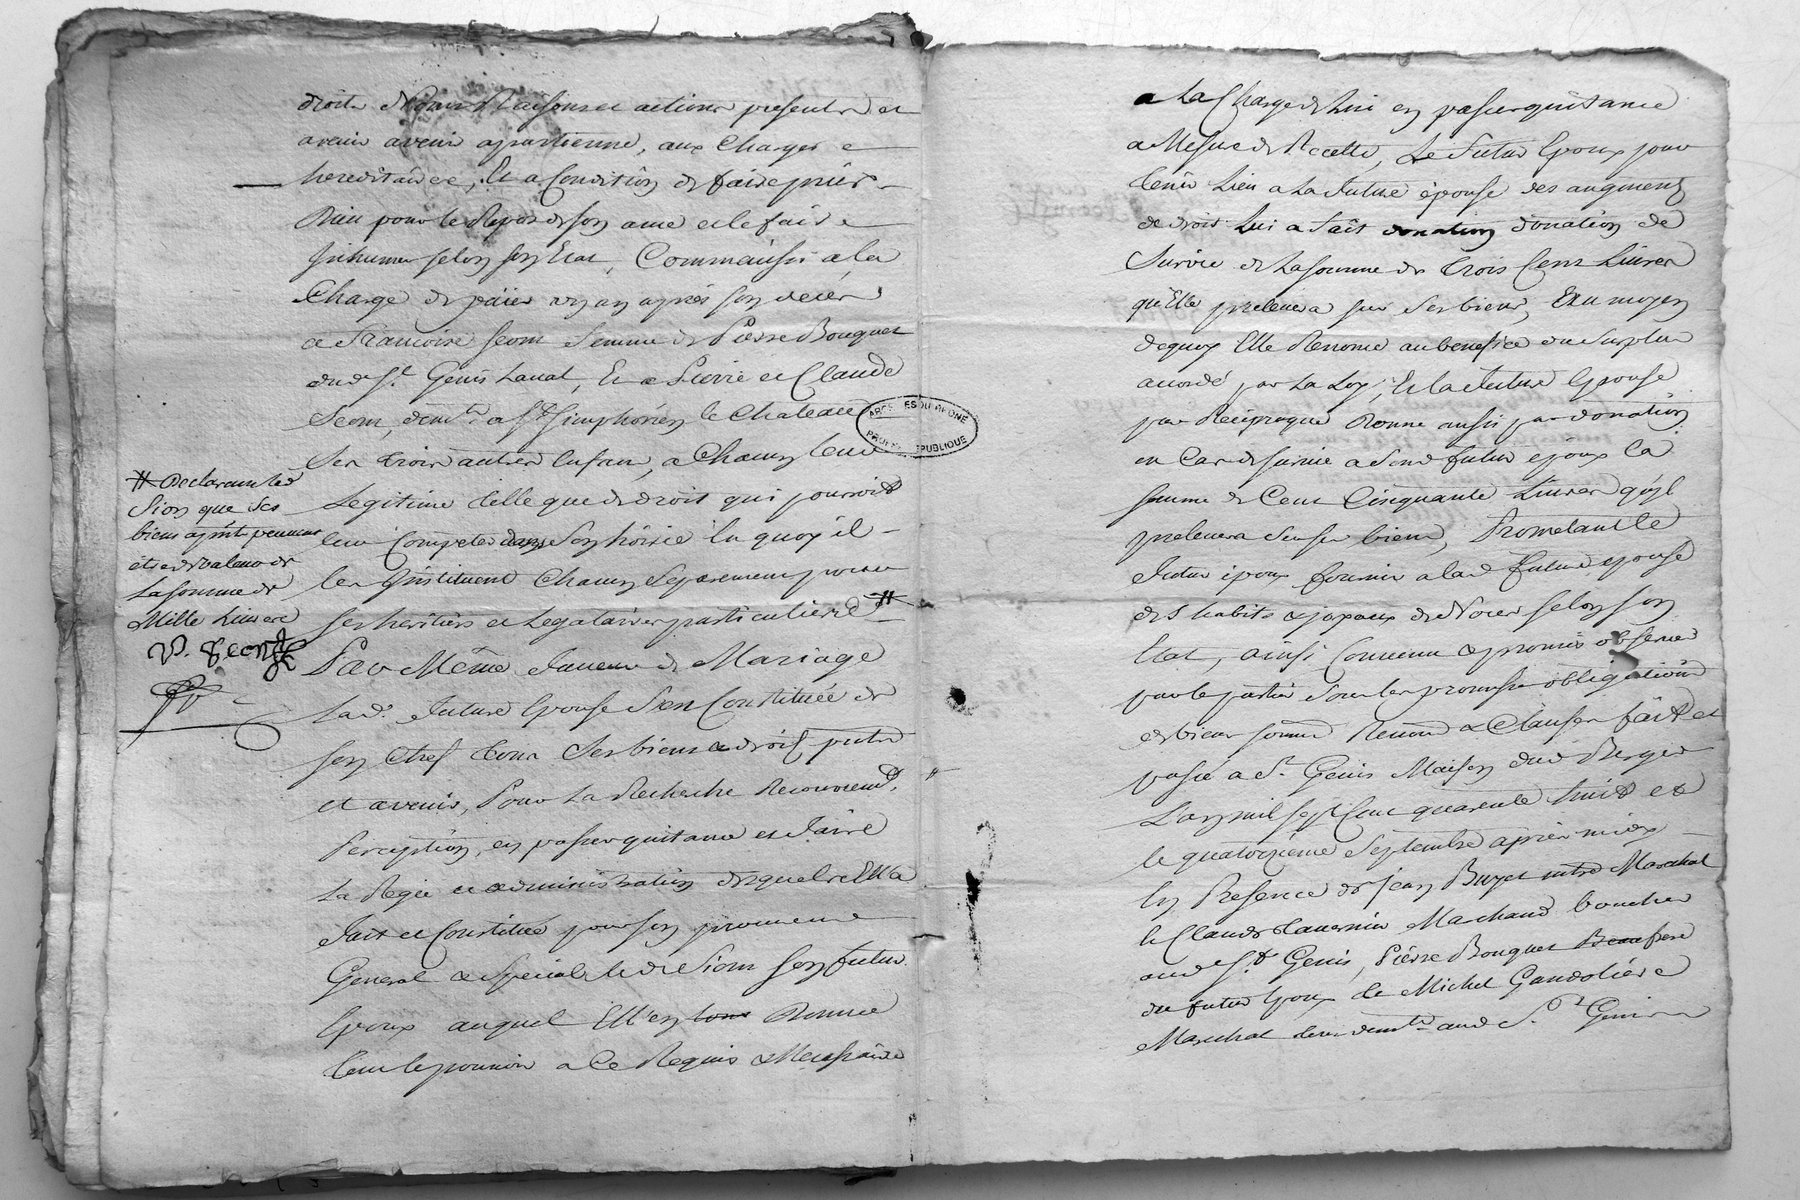 droits Noms Raisons et actions presents et
avenir avenir apartienne, aux Charges
hereditaires, Et a Condition de faire prier
Dieu pour le Repos de son ame et le faire
Inhumer selon son Etat, Comm'aussi a la
Charge de païer un an après son deces
a Francoise Seon femme de Pierre Bouquet
dud. St. Genis Laval, Et a Pierre et Claude
Seon, demts. a St. Simphorien le Chateau
ses trois autres Enfans, a Chacun leur
Legitime telle que de droit qui pourroit
leur Competer dans son hoirie En quoy il
les Instituent Chacun Separement pour
ses heritiers et Legataires particuliers #
# Declarant led
Sion que ses
biens apnt peuvent
être de valeur de
La somme de
Mille Livres
P. Seon
Par Même faveur de Mariage
Lad. future Epouse s'en Constituée de
son Chef tous ses biens & droits pnts
et avenir, Pour La Recherche Recouvremt,
Perception, en passer quitance et faire
La Regie et administration desquels Elle a
fait et Constitué pour son procureur
General & special led Siour son futur
Epoux auquel Ell'en donne
tout le pouvoir a ce Requis & Necessaire
a La Charge de Lui en passer quitance
a Mesure de Recette, Le futur Epoux pour
tenir Lieu a La future épouse des augments
de droit Lui a fait donation de
Survie de La somme de trois Cens Livres
qu'Elle prelevera sur ses biens, Et au moyen
dequoy Elle Renonce au benefice du Surplus
accordé par La Loy, Et la future Epouse
par Reciproque Donne aussi par donation
en Cas de survie a Sond futur epoux la
somme de Cent Cinquante Livres qu'il
prelevera sur ses biens, Promelant le
futur époux fournir a lad future epouse
des habits & joyaux de Noces selon son
Etat, ainsi Convenu & promis observer
par les parties sous les promesses obligations
de biens soumis Renon & Clauses fait et
passé a St. Genis Maison dud Berger
L'an mil sept Cent quarente huit et
le quatorzieme Septembre après midy
En Presence de Jean Buyet Maréchal
& Claude Tavernier Marchand boucher
aud. St. Genis, Pierre Bouquet Beaufrere
du futur Epoux & Michel Gandoliere
Maréchal demts. aud. St. Genis
ARCHIVES DU RHONE
PROPR. PUBLIQUE